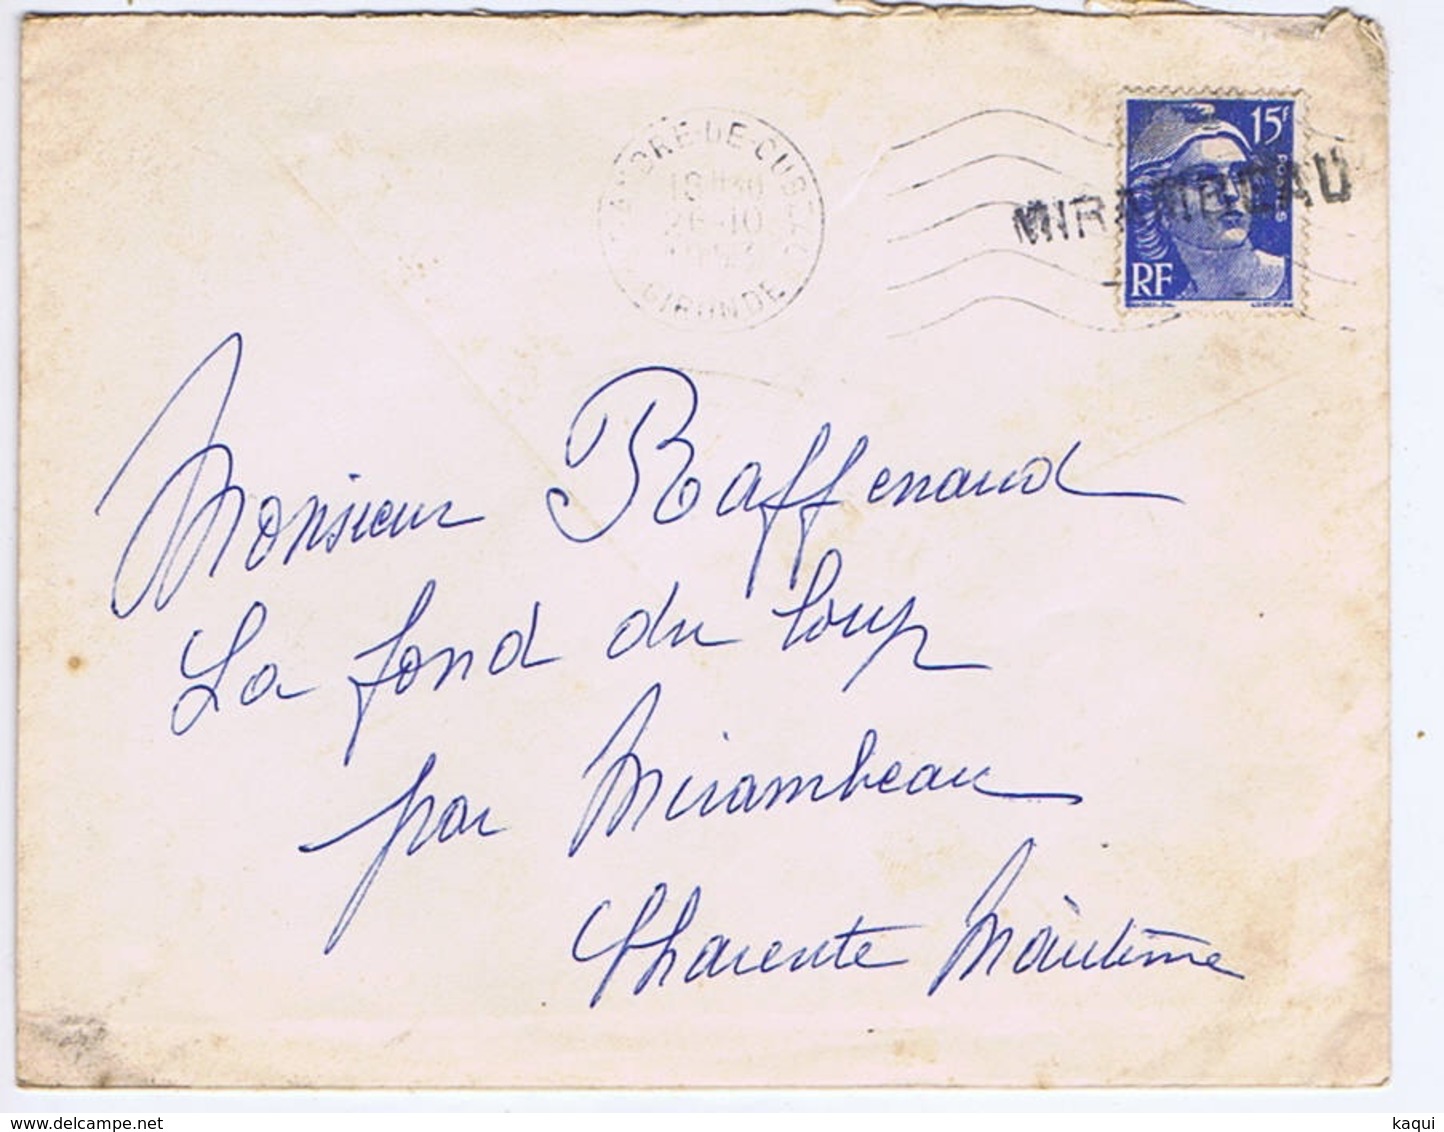 ANDRE-DE-CUBZAC
18H30
26-10
GIRONDE
15F
POSTES
MIRAMBEAU
RF
Monsieur Raffenaud
La fond du loup
par Mirambeau
Charente Maritime
www.delcampe.net
kaqui